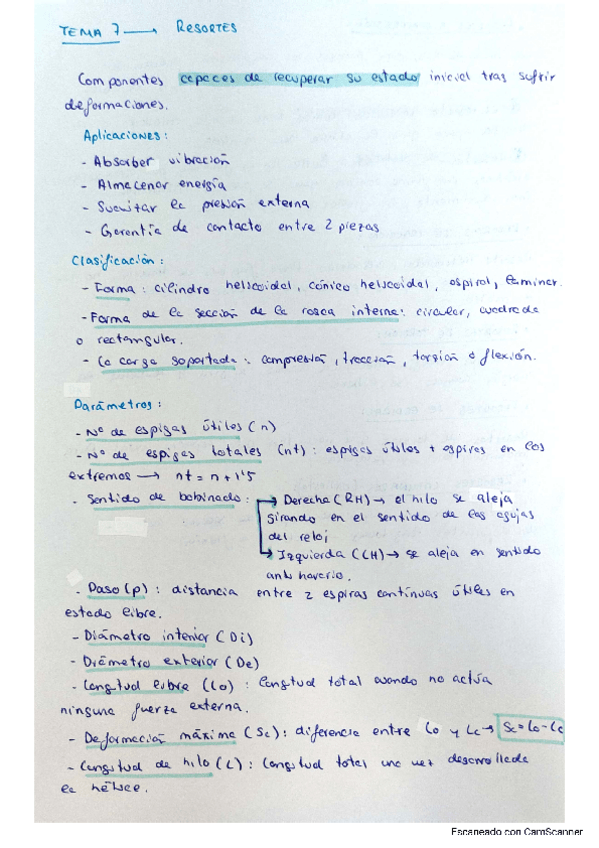 TEMA 7 → RESORTES
Componentes capaces de recuperar su estado inicial tras sufrir
deformaciones.
Aplicaciones:
- Absorber vibración
- Almacenar energía
- Suavizar la presión externa
- Garantía de contacto entre 2 piezas
Clasificación:
- Forma: cilindro helicoidal, cónico helicoidal, espiral, laminar.
- Forma de la sección de la rosca interna: circular, cuadrada
o rectangular.
- La carga soportada: compresión, tracción, torsión o flexión.
Parámetros:
- Nº de espigas útiles (n)
- Nº de espigas totales (nt): espigas útiles + espiras en los
extremos → nt = n + 1'5
- Sentido de bobinado: → Derecha (RH) → el hilo se aleja
girando en el sentido de las agujas
del reloj
→ Izquierda (LH) → se aleja en sentido
anti horario.
- Paso (p): distancia entre 2 espiras continuas útiles en
estado libre.
- Diámetro interior (Di)
- Diámetro exterior (De)
- Longitud libre (Lo): longitud total cuando no actúa
ninguna fuerza externa.
- Deformación máxima (Sc): diferencia entre Lo y Lc → Sc = Lo - Lc
- Longitud de hilo (L): longitud total una vez desarrollada
la hélice.
Escaneado con CamScanner